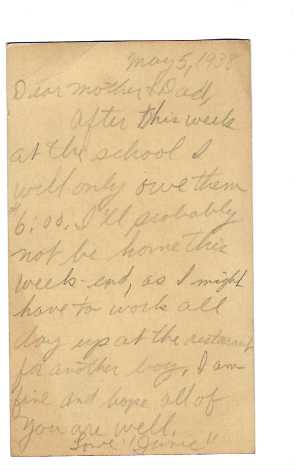 May 5, 1938
Dear Mother & Dad,
After this week
at the school I
will only owe them
$6.00. I'll probably
not be home this
week-end, as I might
have to work all
day up at the restaurant
for another boy. I am
fine and hope all of
you are well.
Love "Junie"